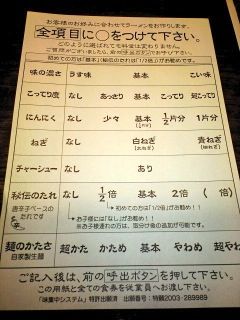 お客様のお好みに合わせてラーメンをお作りします。
全項目に○をつけて下さい。
どのように選ばれても料金は変わりません。
ご質問がございましたら、前の呼出ボタンでお呼び下さい。
初めての方は「基本」「秘伝のたれは『1/2倍』」がお勧めです。
味の濃さ うす味 基本 こい味
こってり度 なし あっさり 基本 こってり 超こってり
にんにく なし 少々 基本 1/2片分 1片分
ねぎ なし 白ねぎ 青ねぎ
チャーシュー なし あり
秘伝のたれ なし 1/2倍 基本 2倍 ( 倍)
唐辛子ベースのたれです
初めての方は「1/2倍」がお勧めです!
お子様には「なし」がお勧めです!
※お子様連れの方は、取分け後の追加が可能です。
麺のかたさ 超かた かため 基本 やわめ 超やわ
自家製生麺
ご記入後は、前の呼出ボタンを押して下さい。
この用紙と全ての食券を従業員へお渡し下さい。
「味集中システム」特許出願済 出願番号:特願2003-289989